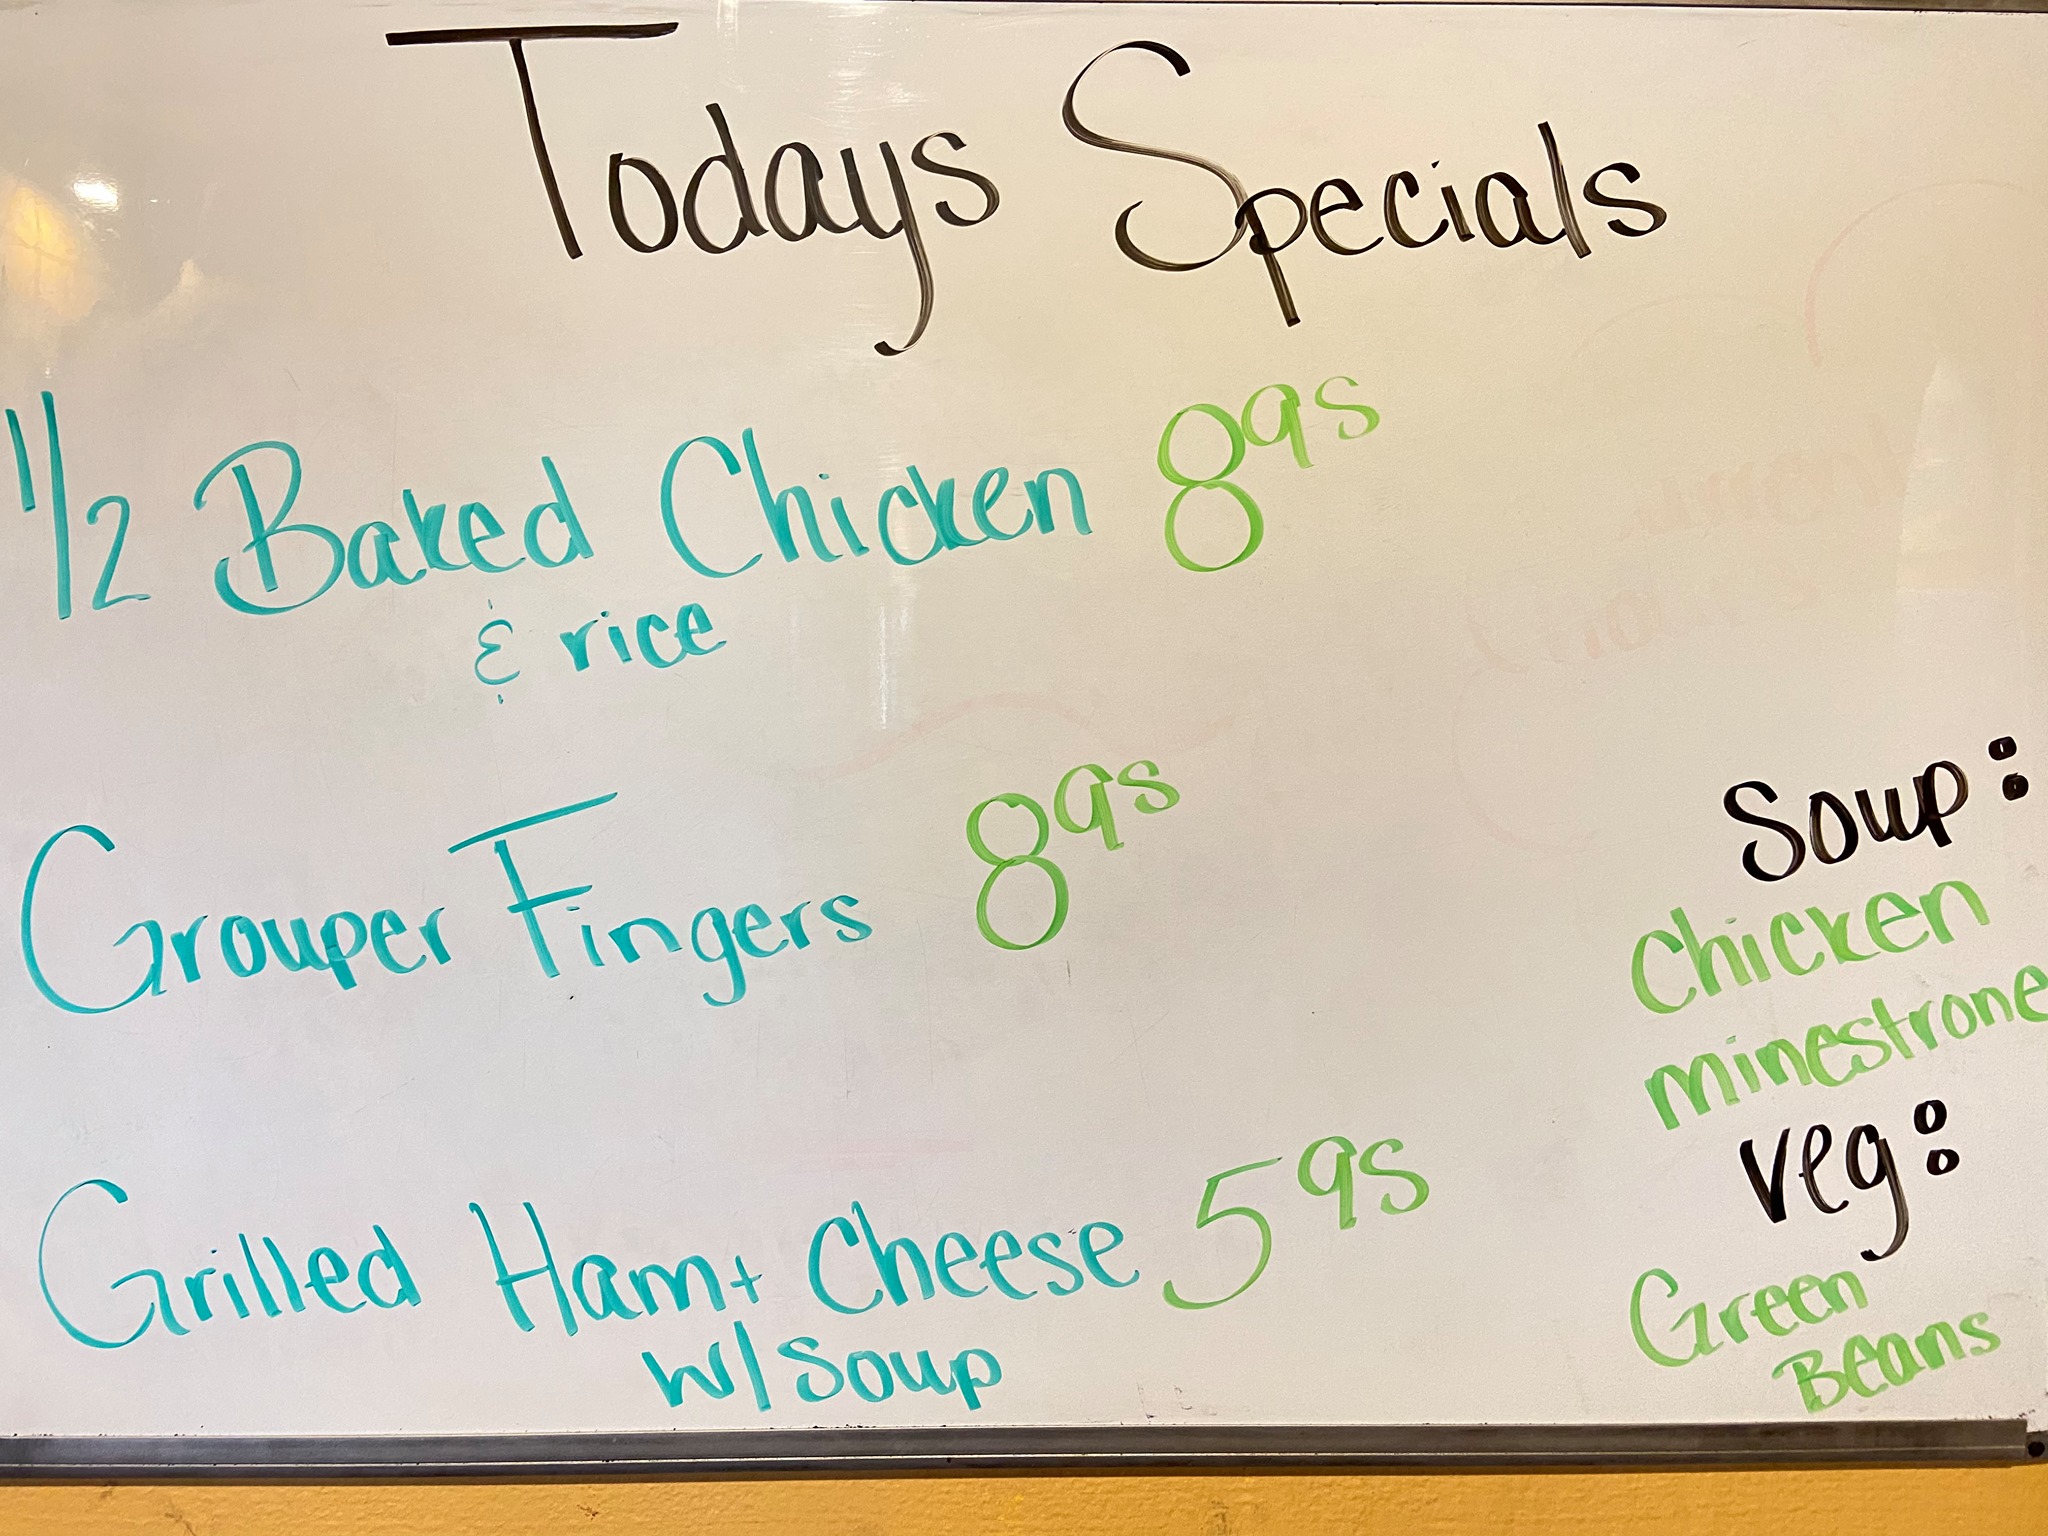 Todays Specials
1/2 Baked Chicken 895
& rice
Grouper Fingers 895
Grilled Ham + Cheese 595
w/ soup
Soup:
Chicken
minestrone
Veg:
Green
Beans